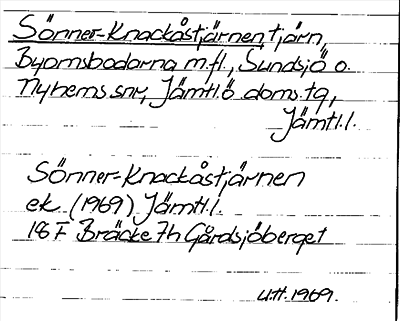 Sönner-Knackåstjärnen, tjärn,
Byomsbodarna m.fl., Sundsjö o.
Nyhems snr, Jämtl.ö. doms.tg,
Jämtl.l.
Sönner-Knackåstjärnen
ek. (1969) Jämtl.l.
18 F Bräcke 7h Gårdsjöberget
U.H. 1969.